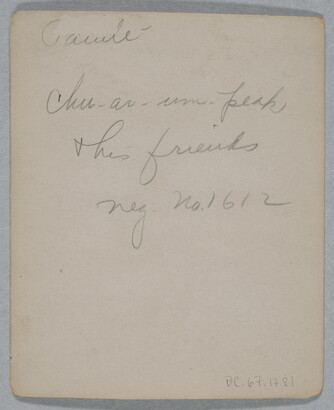 Paiute
Chu-ar-um-peak
& his friends
neg. No. 1612
DC.67.1781